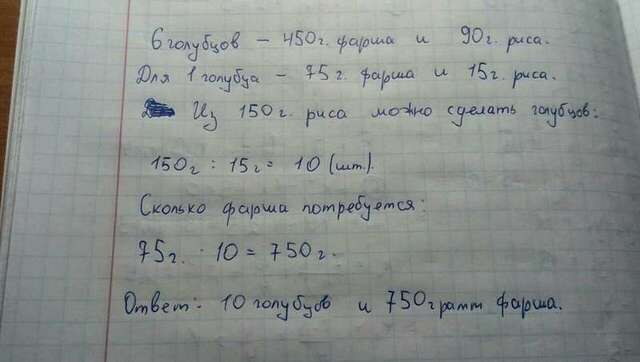 6 голубцов - 450г. фарша и 90г. риса.
Для 1 голубца - 75г. фарша и 15г. риса.
Из 150г. риса можно сделать голубцов:
150г : 15г = 10 (шт.).
Сколько фарша потребуется:
75г. · 10 = 750г.
Ответ: 10 голубцов и 750грамм фарша.